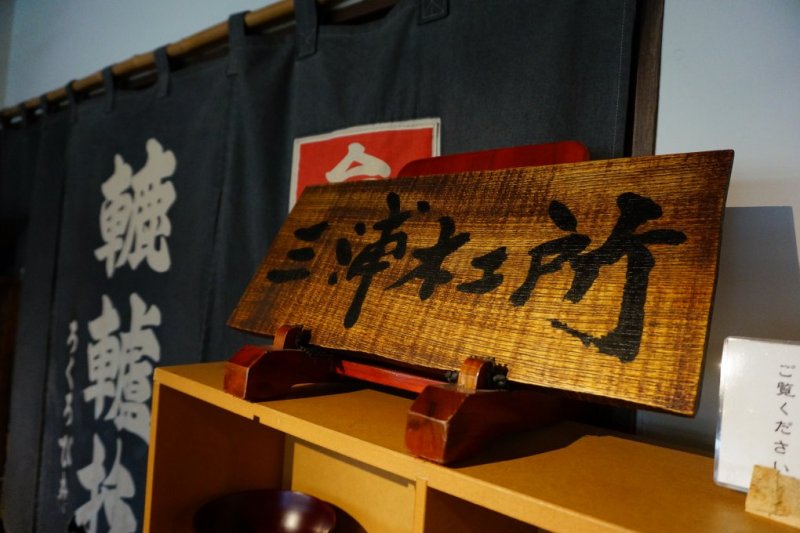 三浦木工所
轆轤
ろくろ
ご覧ください